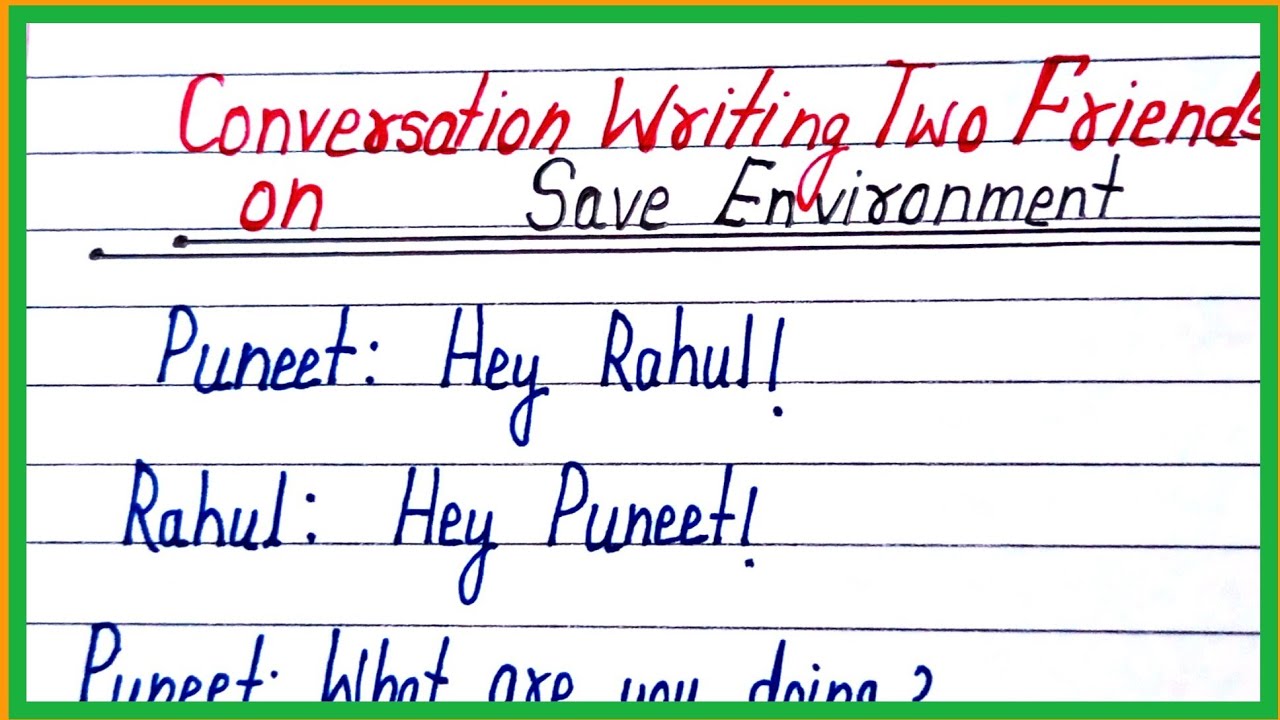 Conversation Writing Two Friends
on Save Environment
Puneet: Hey Rahul!
Rahul: Hey Puneet!
Puneet: What are you doing?